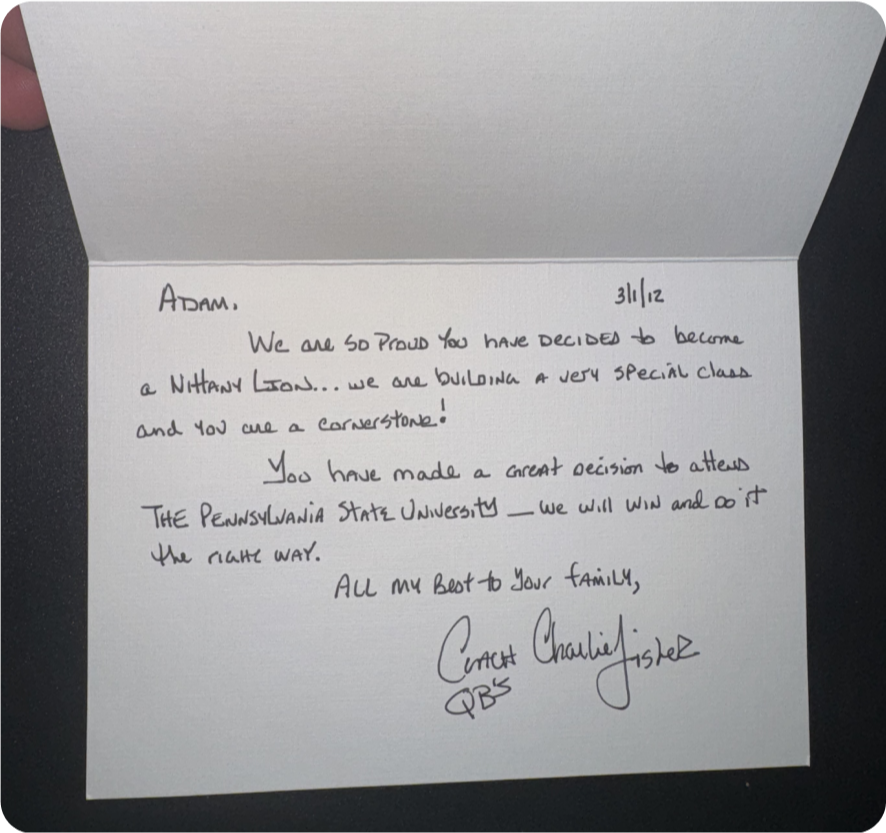 ADAM, 3/1/12
We are so Proud You have DECIDED to become
a NITTANY LION... we are building A very special class
and you are a cornerstone!
You have made a great decision to attend
THE PENNSYLVANIA STATE UNIVERSITY — we will win and do it
the right WAY.
ALL my Best to Your family,
COACH Charlie Fisher
QB'S